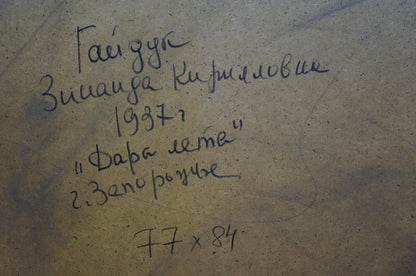 Гайдук
Зинаида Кирилловна
1937г
„Дары лета"
г. Запорожье
77 x 84